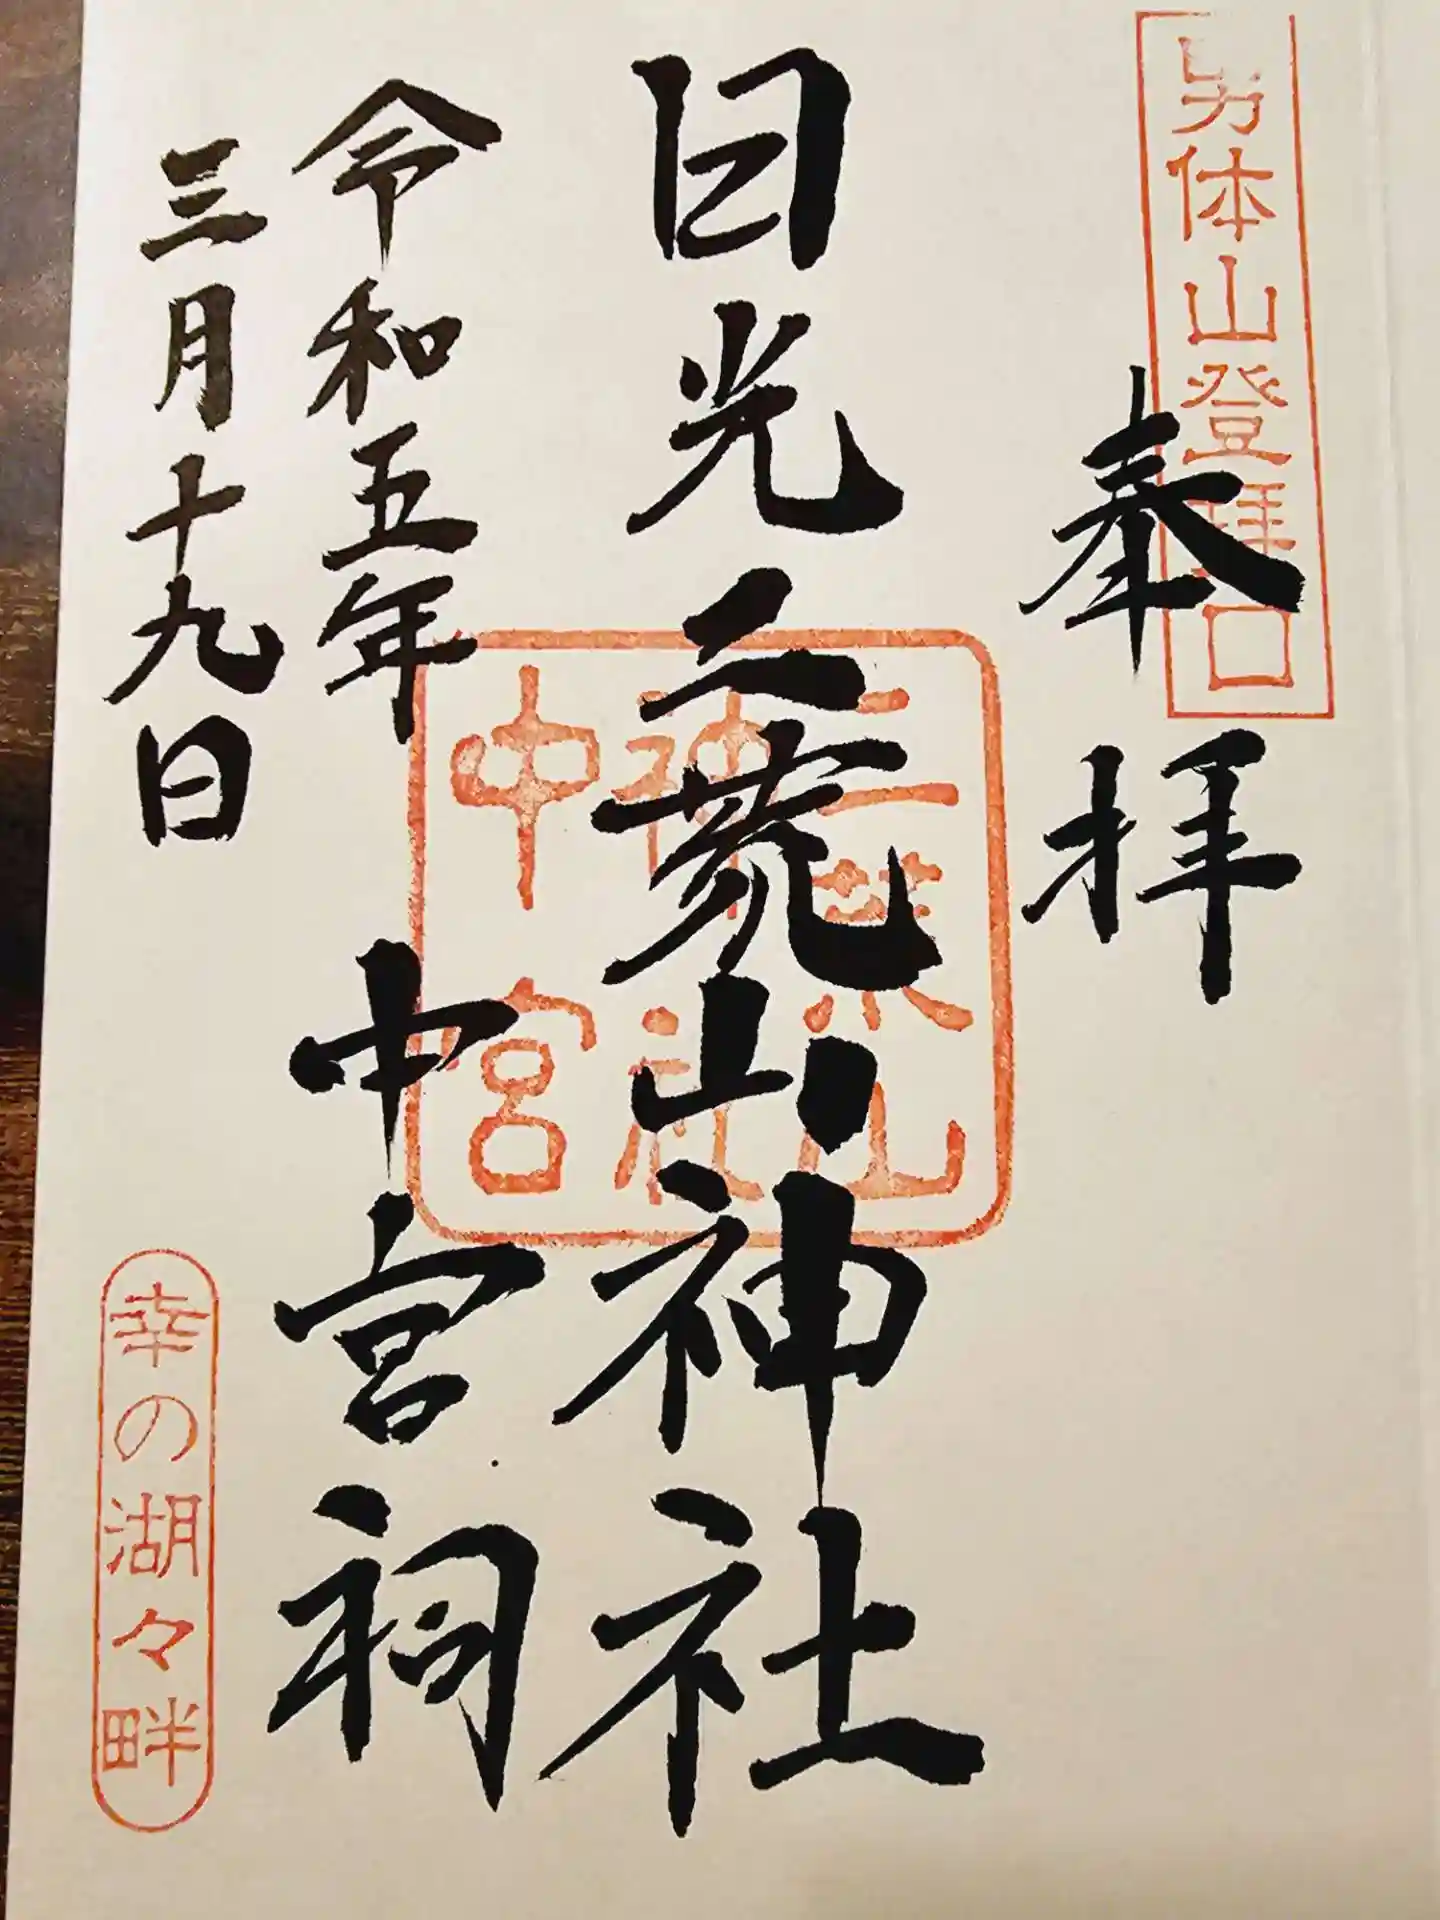 男体山登拝口
奉拝
日光二荒山神社
二荒山
神社
中宮
中宮祠
令和五年
三月十九日
幸の湖々畔